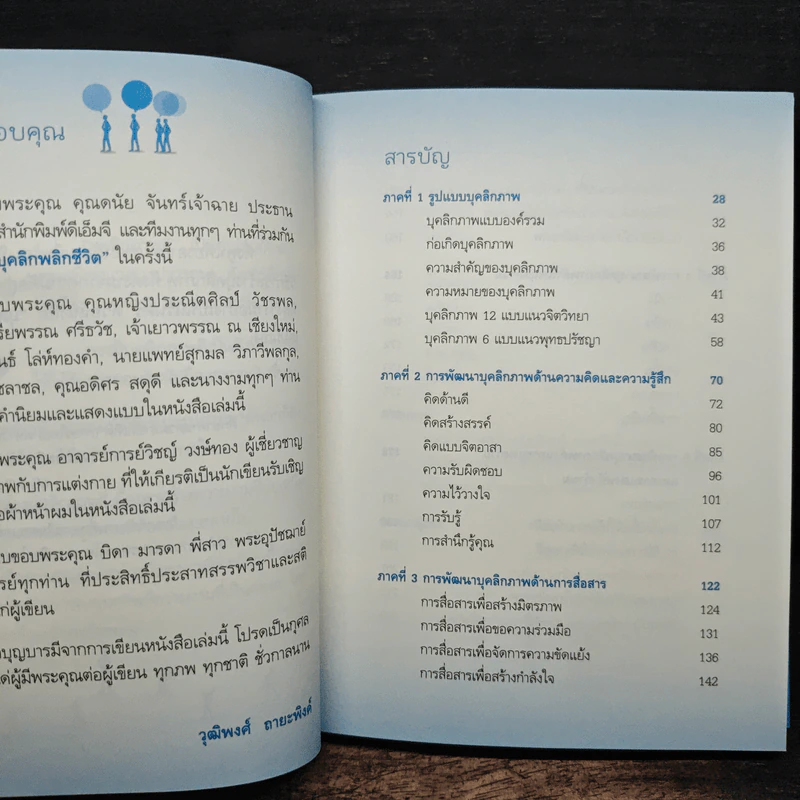 อบคุณ
พระคุณ คุณดนัย จันทร์เจ้าฉาย ประธาน
สำนักพิมพ์ดีเอ็มจี และทีมงานทุกๆ ท่านที่ร่วมกัน
บุคลิกพลิกชีวิต” ในครั้งนี้
บพระคุณ คุณหญิงประณีตศิลป์ วัชรพล,
รียพรรณ ศรีธวัช, เจ้าเยาวพรรณ ณ เชียงใหม่,
นธ์ โล่ห์ทองคำ, นายแพทย์สุกมล วิภาวีพลกุล,
ชลาชล, คุณอดิศร สดุดี และนางงามทุกๆ ท่าน
คำนิยมและแสดงแบบในหนังสือเล่มนี้
พระคุณ อาจารย์การย์วิชญ์ วงษ์ทอง ผู้เชี่ยวชาญ
าพกับการแต่งกาย ที่ให้เกียรติเป็นนักเขียนรับเชิญ
อผ้าหน้าผมในหนังสือเล่มนี้
บขอบพระคุณ บิดา มารดา พี่สาว พระอุปัชฌาย์
รย์ทุกท่าน ที่ประสิทธิ์ประสาทสรรพวิชาและสติ
ก่ผู้เขียน
บุญบารมีจากการเขียนหนังสือเล่มนี้ โปรดเป็นกุศล
ด่ผู้มีพระคุณต่อผู้เขียน ทุกภพ ทุกชาติ ชั่วกาลนาน
วุฒิพงศ์ ถายะพิงค์
สารบัญ
ภาคที่ 1 รูปแบบบุคลิกภาพ 28
บุคลิกภาพแบบองค์รวม 32
ก่อเกิดบุคลิกภาพ 36
ความสำคัญของบุคลิกภาพ 38
ความหมายของบุคลิกภาพ 41
บุคลิกภาพ 12 แบบแนวจิตวิทยา 43
บุคลิกภาพ 6 แบบแนวพุทธปรัชญา 58
ภาคที่ 2 การพัฒนาบุคลิกภาพด้านความคิดและความรู้สึก 70
คิดด้านดี 72
คิดสร้างสรรค์ 80
คิดแบบจิตอาสา 85
ความรับผิดชอบ 96
ความไว้วางใจ 101
การรับรู้ 107
การสำนึกรู้คุณ 112
ภาคที่ 3 การพัฒนาบุคลิกภาพด้านการสื่อสาร 122
การสื่อสารเพื่อสร้างมิตรภาพ 124
การสื่อสารเพื่อขอความร่วมมือ 131
การสื่อสารเพื่อจัดการความขัดแย้ง 136
การสื่อสารเพื่อสร้างกำลังใจ 142